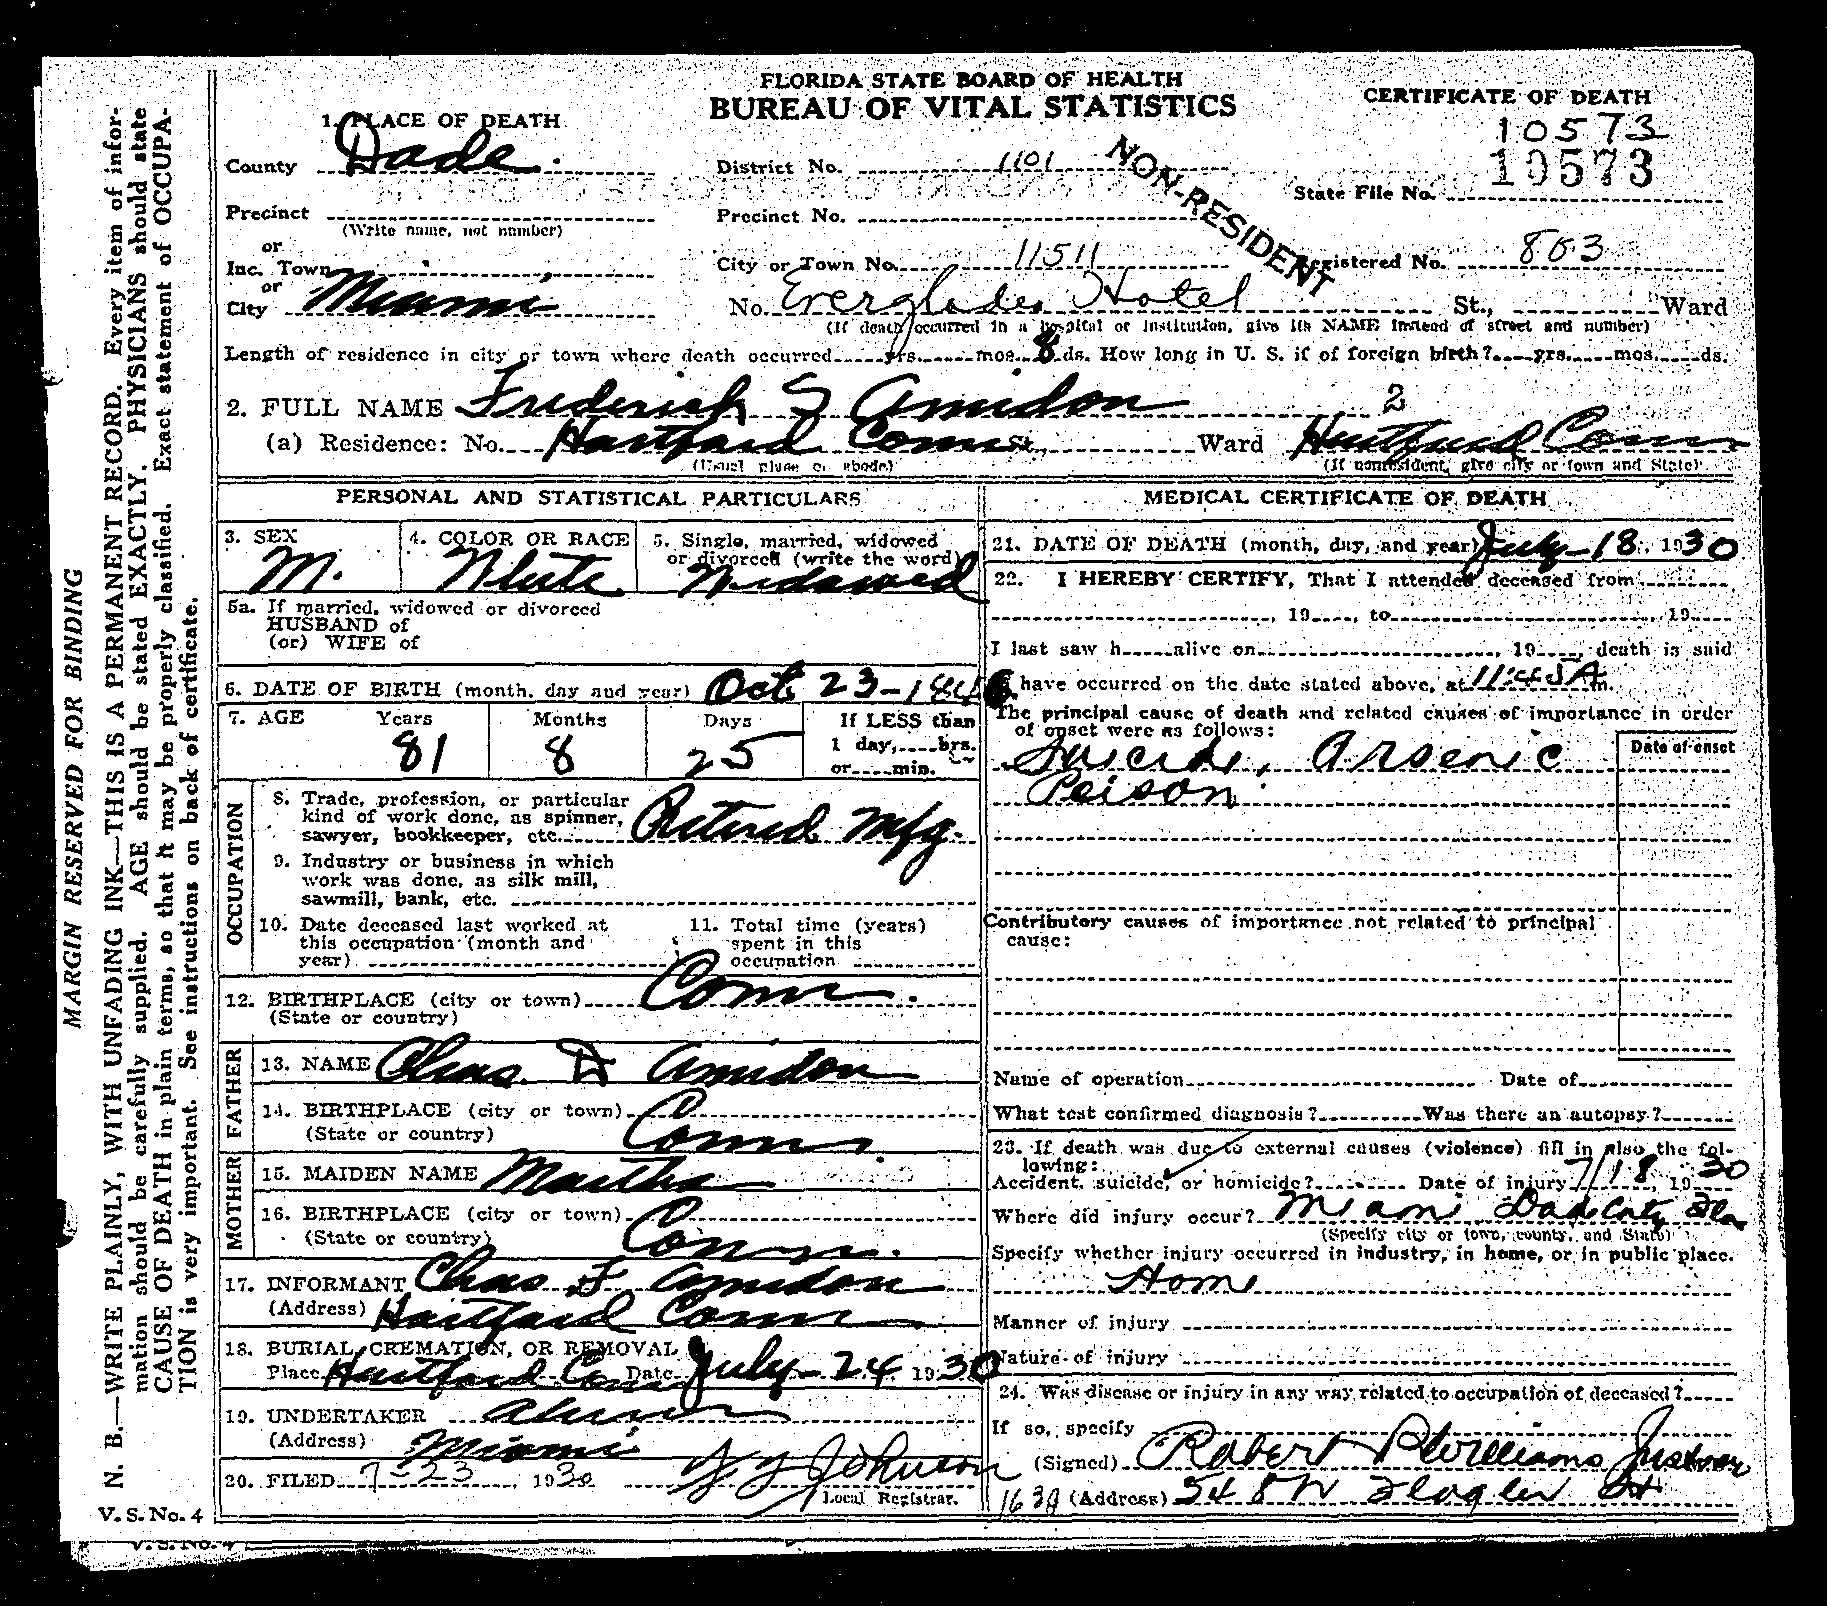 FLORIDA STATE BOARD OF HEALTH
BUREAU OF VITAL STATISTICS
CERTIFICATE OF DEATH
10573
1. PLACE OF DEATH
County Dade.
District No. 1101
NON-RESIDENT
State File No. 10573
Precinct
(Write name, not number)
Precinct No.
or
Inc. Town
City or Town No. 11511
Registered No. 803
or
City Miami
No. Everglades Hotel St., Ward
(If death occurred in a hospital or institution, give its NAME instead of street and number)
Length of residence in city or town where death occurred yrs. mos. 8 ds. How long in U. S. if of foreign birth? yrs. mos. ds.
2. FULL NAME Frederick S Amidon
2
(a) Residence: No. Hartford Conn St., Ward Hartford Conn
(Usual place of abode) (If nonresident, give city or town and State)
PERSONAL AND STATISTICAL PARTICULARS
3. SEX M.
4. COLOR OR RACE White
5. Single, married, widowed or divorced (write the word) Widowed
5a. If married, widowed or divorced
HUSBAND of
(or) WIFE of
6. DATE OF BIRTH (month, day and year) Oct 23-184
7. AGE Years 81 Months 8 Days 25
If LESS than
1 day, hrs.
or min.
OCCUPATION
8. Trade, profession, or particular
kind of work done, as spinner,
sawyer, bookkeeper, etc. Retired Mfg.
9. Industry or business in which
work was done, as silk mill,
sawmill, bank, etc.
10. Date deceased last worked at
this occupation (month and
year)
11. Total time (years)
spent in this
occupation
12. BIRTHPLACE (city or town) Conn.
(State or country)
FATHER
13. NAME Chas. D Amidon
14. BIRTHPLACE (city or town)
(State or country) Conn.
MOTHER
15. MAIDEN NAME Martha
16. BIRTHPLACE (city or town)
(State or country) Conn.
17. INFORMANT Chas F Amidon
(Address) Hartford Conn
18. BURIAL, CREMATION, OR REMOVAL
Place Hartford Conn Date July-24 1930
19. UNDERTAKER
(Address) Miami
20. FILED 7-23, 1930 Johnson
Local Registrar.
MEDICAL CERTIFICATE OF DEATH
21. DATE OF DEATH (month, day, and year) July-18, 1930
22. I HEREBY CERTIFY, That I attended deceased from
, 19 , to , 19
I last saw h alive on , 19 , death is said
to have occurred on the date stated above, at 11:45 A m.
The principal cause of death and related causes of importance in order
of onset were as follows:
Date of onset
Suicide, Arsenic
Poison
Contributory causes of importance not related to principal
cause:
Name of operation Date of
What test confirmed diagnosis? Was there an autopsy?
23. If death was due to external causes (violence) fill in also the fol-
lowing:
Accident, suicide, or homicide? Date of injury 7/18, 1930
Where did injury occur? Miami Dade Cnty Fla
(Specify city or town, county, and State)
Specify whether injury occurred in industry, in home, or in public place.
Home
Manner of injury
Nature of injury
24. Was disease or injury in any way related to occupation of deceased?
If so, specify
(Signed) Robert R Williams
163A (Address) 548 W Flagler St
MARGIN RESERVED FOR BINDING
N. B.—WRITE PLAINLY, WITH UNFADING INK—THIS IS A PERMANENT RECORD. Every item of infor-
mation should be carefully supplied. AGE should be stated EXACTLY. PHYSICIANS should state
CAUSE OF DEATH in plain terms, so that it may be properly classified. Exact statement of OCCUPA-
TION is very important. See instructions on back of certificate.
V. S. No. 4
V. S. No. 4